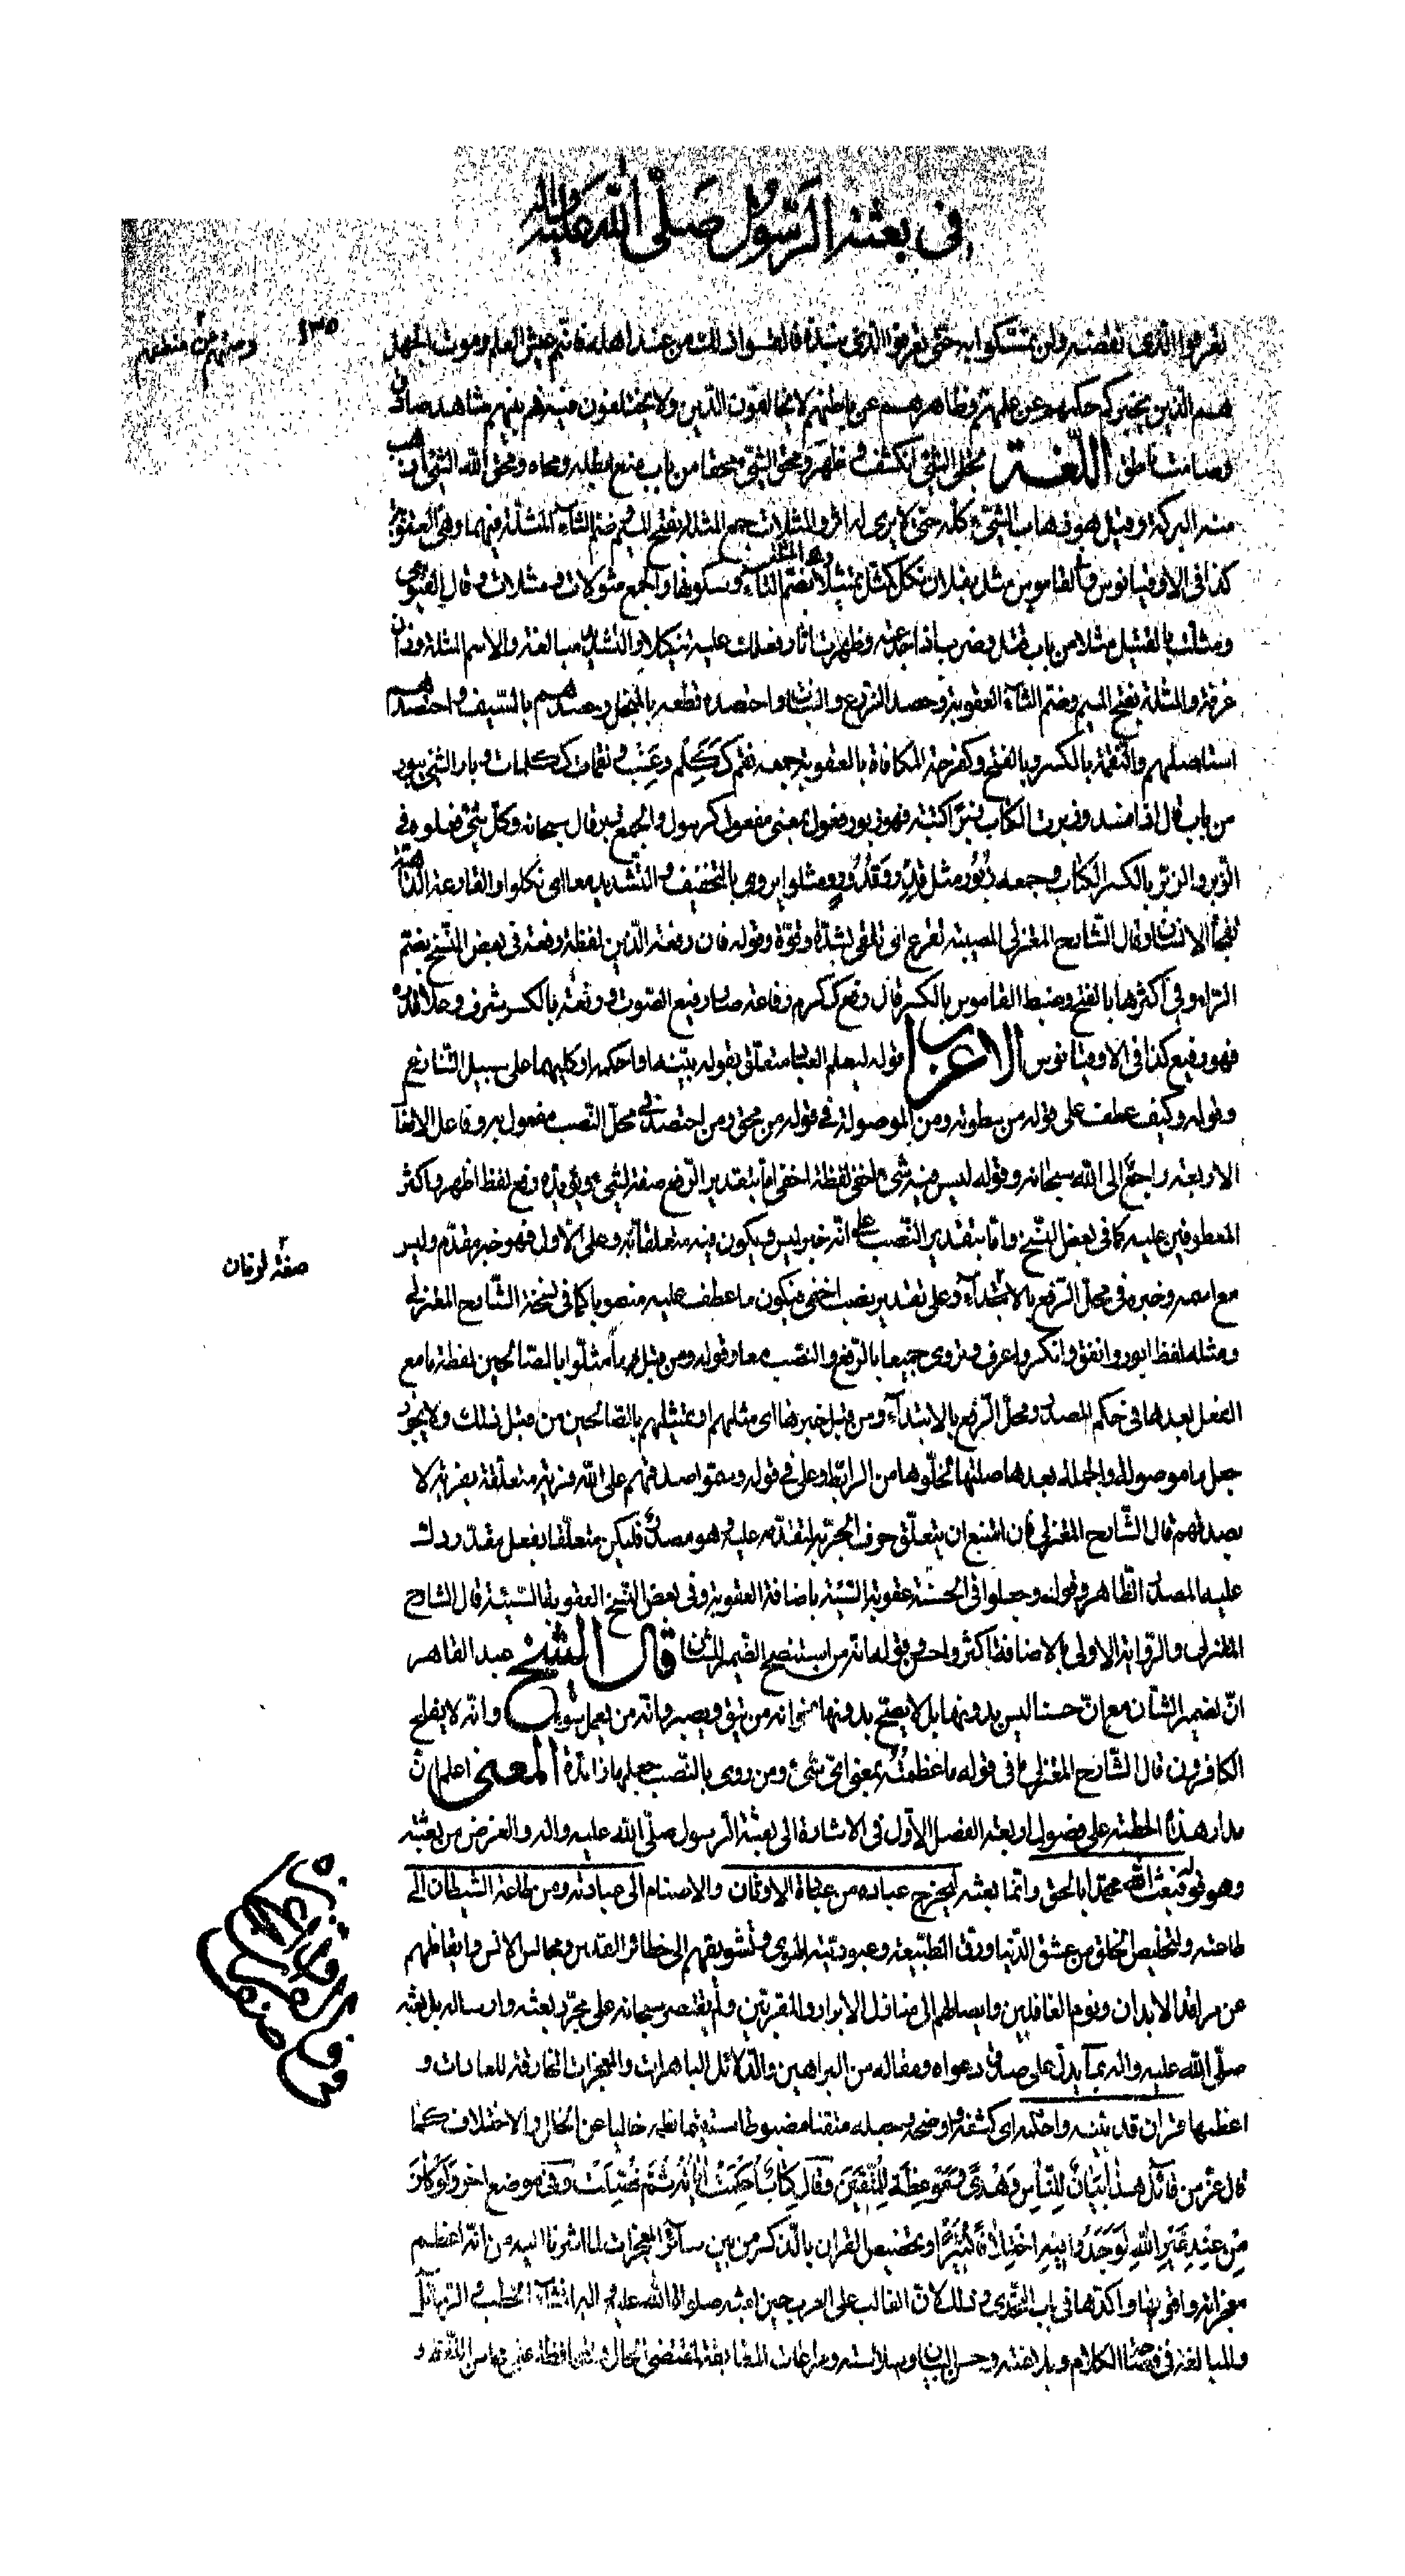 في بعثة الرسول صلى الله عليه وآله
١٣٥
وصمتهم عن منطقهم
تعرفوا الذي نقضه ولن تمسكوا به حتى تعرفوا الذي نبذه فالتمسوا ذلك من عند أهله فانهم عيش العلم وموت الجهل
هم الذين يخبركم حكمهم عن علمهم وظاهرهم عن باطنهم لا يخالفون الدين ولا يختلفون فيه فهو بينهم شاهد صادق
وصامت ناطق اللغة تجلى الشيء انكشف وظهر ومحق الشيء محقا من باب منع ابطله ومحاه ومحق الله الشيء اذهب
منه البركة وقيل هو ذهاب الشيء كله حتى لا يرى له اثر والمثلات جمع المثلة بفتح الميم وضم الثاء المثلثة فيهما وهي العقوبة
كذا في الاوقيانوس وفي القاموس مثل بفلان نكل كمثل تمثيلا وهي المثلة بضم الثاء وسكونها والجمع مثولات ومثلات وقال الفيومي
ومثلت بالقتيل مثلا من باب قتل وضرب اذا جدعته وظهرت اثار فعلك عليه تنكيلا والتشديد مبالغة والاسم المثلة وزان
غرفة والمثلة بفتح الميم وضم الثاء العقوبة وحصد الزرع والنبات واحتصده قطعه بالمنجل وحصدهم بالسيف واحتصدهم
استاصلهم والنقمة بالكسر وبالفتح وكفرحة المكافاة بالعقوبة جمعه نقم ككلم وعنب ونقمات ككلمات وبار الشيء يبور
من باب قال اذا فسد وزبرت الكتاب زبرا كتبته فهو زبور فعول بمعنى مفعول كرسول والجمع زبر قال سبحانه وكل شيء فعلوه في
الزبر والزبر بالكسر الكتاب وجمعه زبور مثل قدر وقدور ومثلوا يروى بالتخفيف والتشديد معا اى نكلوا والقارعة الداهية
تفجأ الانسان وقال الشارح المعتزلي المصيبة تقرع اى تلقى بشدة وقوة وقوله فان رفعة الذين لفظة رفعة في بعض النسخ بضم
الراء وفي اكثرها بالفتح وضبط القاموس بالكسر قال رفع ككرم رفاعة صار رفيع الصوت ورفعة بالكسر شرف وعلا قدره
فهو رفيع كذا في الاوقيانوس الاعراب قوله ليعلم العباد متعلق بقوله بينه او احكمه او كليهما على سبيل التنازع
وقوله وكيف عطف على قوله من سطوته ومن الموصولة في قوله من محق ومن احتصد في محل النصب مفعول به وفاعل الافعال
الاربعة راجع الى الله سبحانه وقوله ليس فيه شيء اخفى لفظة اخفى اما بتقدير الرفع صفة لشيء ويؤيده رفع لفظ اظهر واكثر
المعطوفين عليه كما في بعض النسخ واما بتقدير النصب على انه خبر ليس ويكون فيه متعلقا به وعلى الاول فهو خبر مقدم وليس
صفة لزمان
مع اسمه وخبره في محل الرفع بالابتداء وعلى تقدير نصب اخفى فيكون ما عطف عليه منصوبا كما في نسخة الشارح المعتزلي
ومثله لفظ ابور وانفق وانكر واعرف وتروى جميعا بالرفع والنصب معا وقوله ومن قبل ما مثلوا بالصالحين لفظة ما مع
الفعل بعدها في حكم المصدر ومحل الرفع بالابتداء ومن قبل خبرها اى مثلهم او تمثيلهم بالصالحين من قبل ذلك ولا يجوز
جعل ما موصولة والجملة بعدها صلتها لخلوها من الرابط وعلى في قوله وسموا صدقهم على الله فرية متعلقة بفرية لا
بصدقهم قال الشارح المعتزلي فان امتنع ان يتعلق حرف الجر به لتقدمه عليه وهو مصدر فليكن متعلقا بفعل مقدر دل
عليه المصدر الظاهر وقوله وجعلوا في الحسنة عقوبة السيئة باضافة العقوبة وفي بعض النسخ العقوبة السيئة قال الشارح
المعتزلي والرواية الاولى بالاضافة اكثر واحسن وقوله انه من استنصح الضمير للشان قال الشيخ عبد القاهر
ان لضمير الشان مع ان حسنا ليس بدونها بل لا يصح بدونها نحو انه من يتق ويصبر وانه من يعمل سوء وانه لا يفلح
الكافرون قال الشارح المعتزلي ما في قوله ما عظمته بمعنى اى شيء ومن روى بالنصب جعلها زائدة المعنى اعلم ان
مدار هذه الخطبة على فصول اربعة الفصل الاول في الاشارة الى بعثة الرسول صلى الله عليه وآله والغرض من بعثته
وهو قوله فبعث الله محمدا بالحق وانما بعثه ليخرج عباده من عبادة الاوثان والاصنام الى عبادته ومن طاعة الشيطان الى
طاعته ولتخليص الخلق من عشق الدنيا ورق الطبيعة وعبودية الهوى وتشويقهم الى حظائر القدس ومجالس الانس وايقاظهم
عن مراقد الابدان ونوم الغافلين وايصالهم الى منازل الابرار والمقربين ولم يقتصر سبحانه على مجرد بعثه وارساله بل بعثه
صلى الله عليه وآله بما يدل على صدق دعواه ومقاله من البراهين والدلائل الباهرات والمعجزات الخارقة للعادات و
اعظمها قرآن قد بينه واحكمه اى كشفه واوضحه وجعله متقنا مضبوطا نظمه خاليا عن الخلل والاختلاف كما
قال عز من قائل هذا بيان للناس وهدى وموعظة للمتقين وقال كتاب احكمت آياته ثم فصلت وفي موضع آخر ولو كان
من عند غير الله لوجدوا فيه اختلافا كثيرا وتخصيص القرآن بالذكر من بين سائر المعجزات لما اشرنا اليه من انه اعظم
معجزاته واقويها واكدها في باب التحدى وذلك لان الغالب على العرب حين بعثه صلوات الله عليه وآله انشاء الخطب والرسائل
والمبالغة في فصاحة الكلام وبلاغته وحسن البيان وسلاسته ومراعات المطابقة لمقتضى الحال